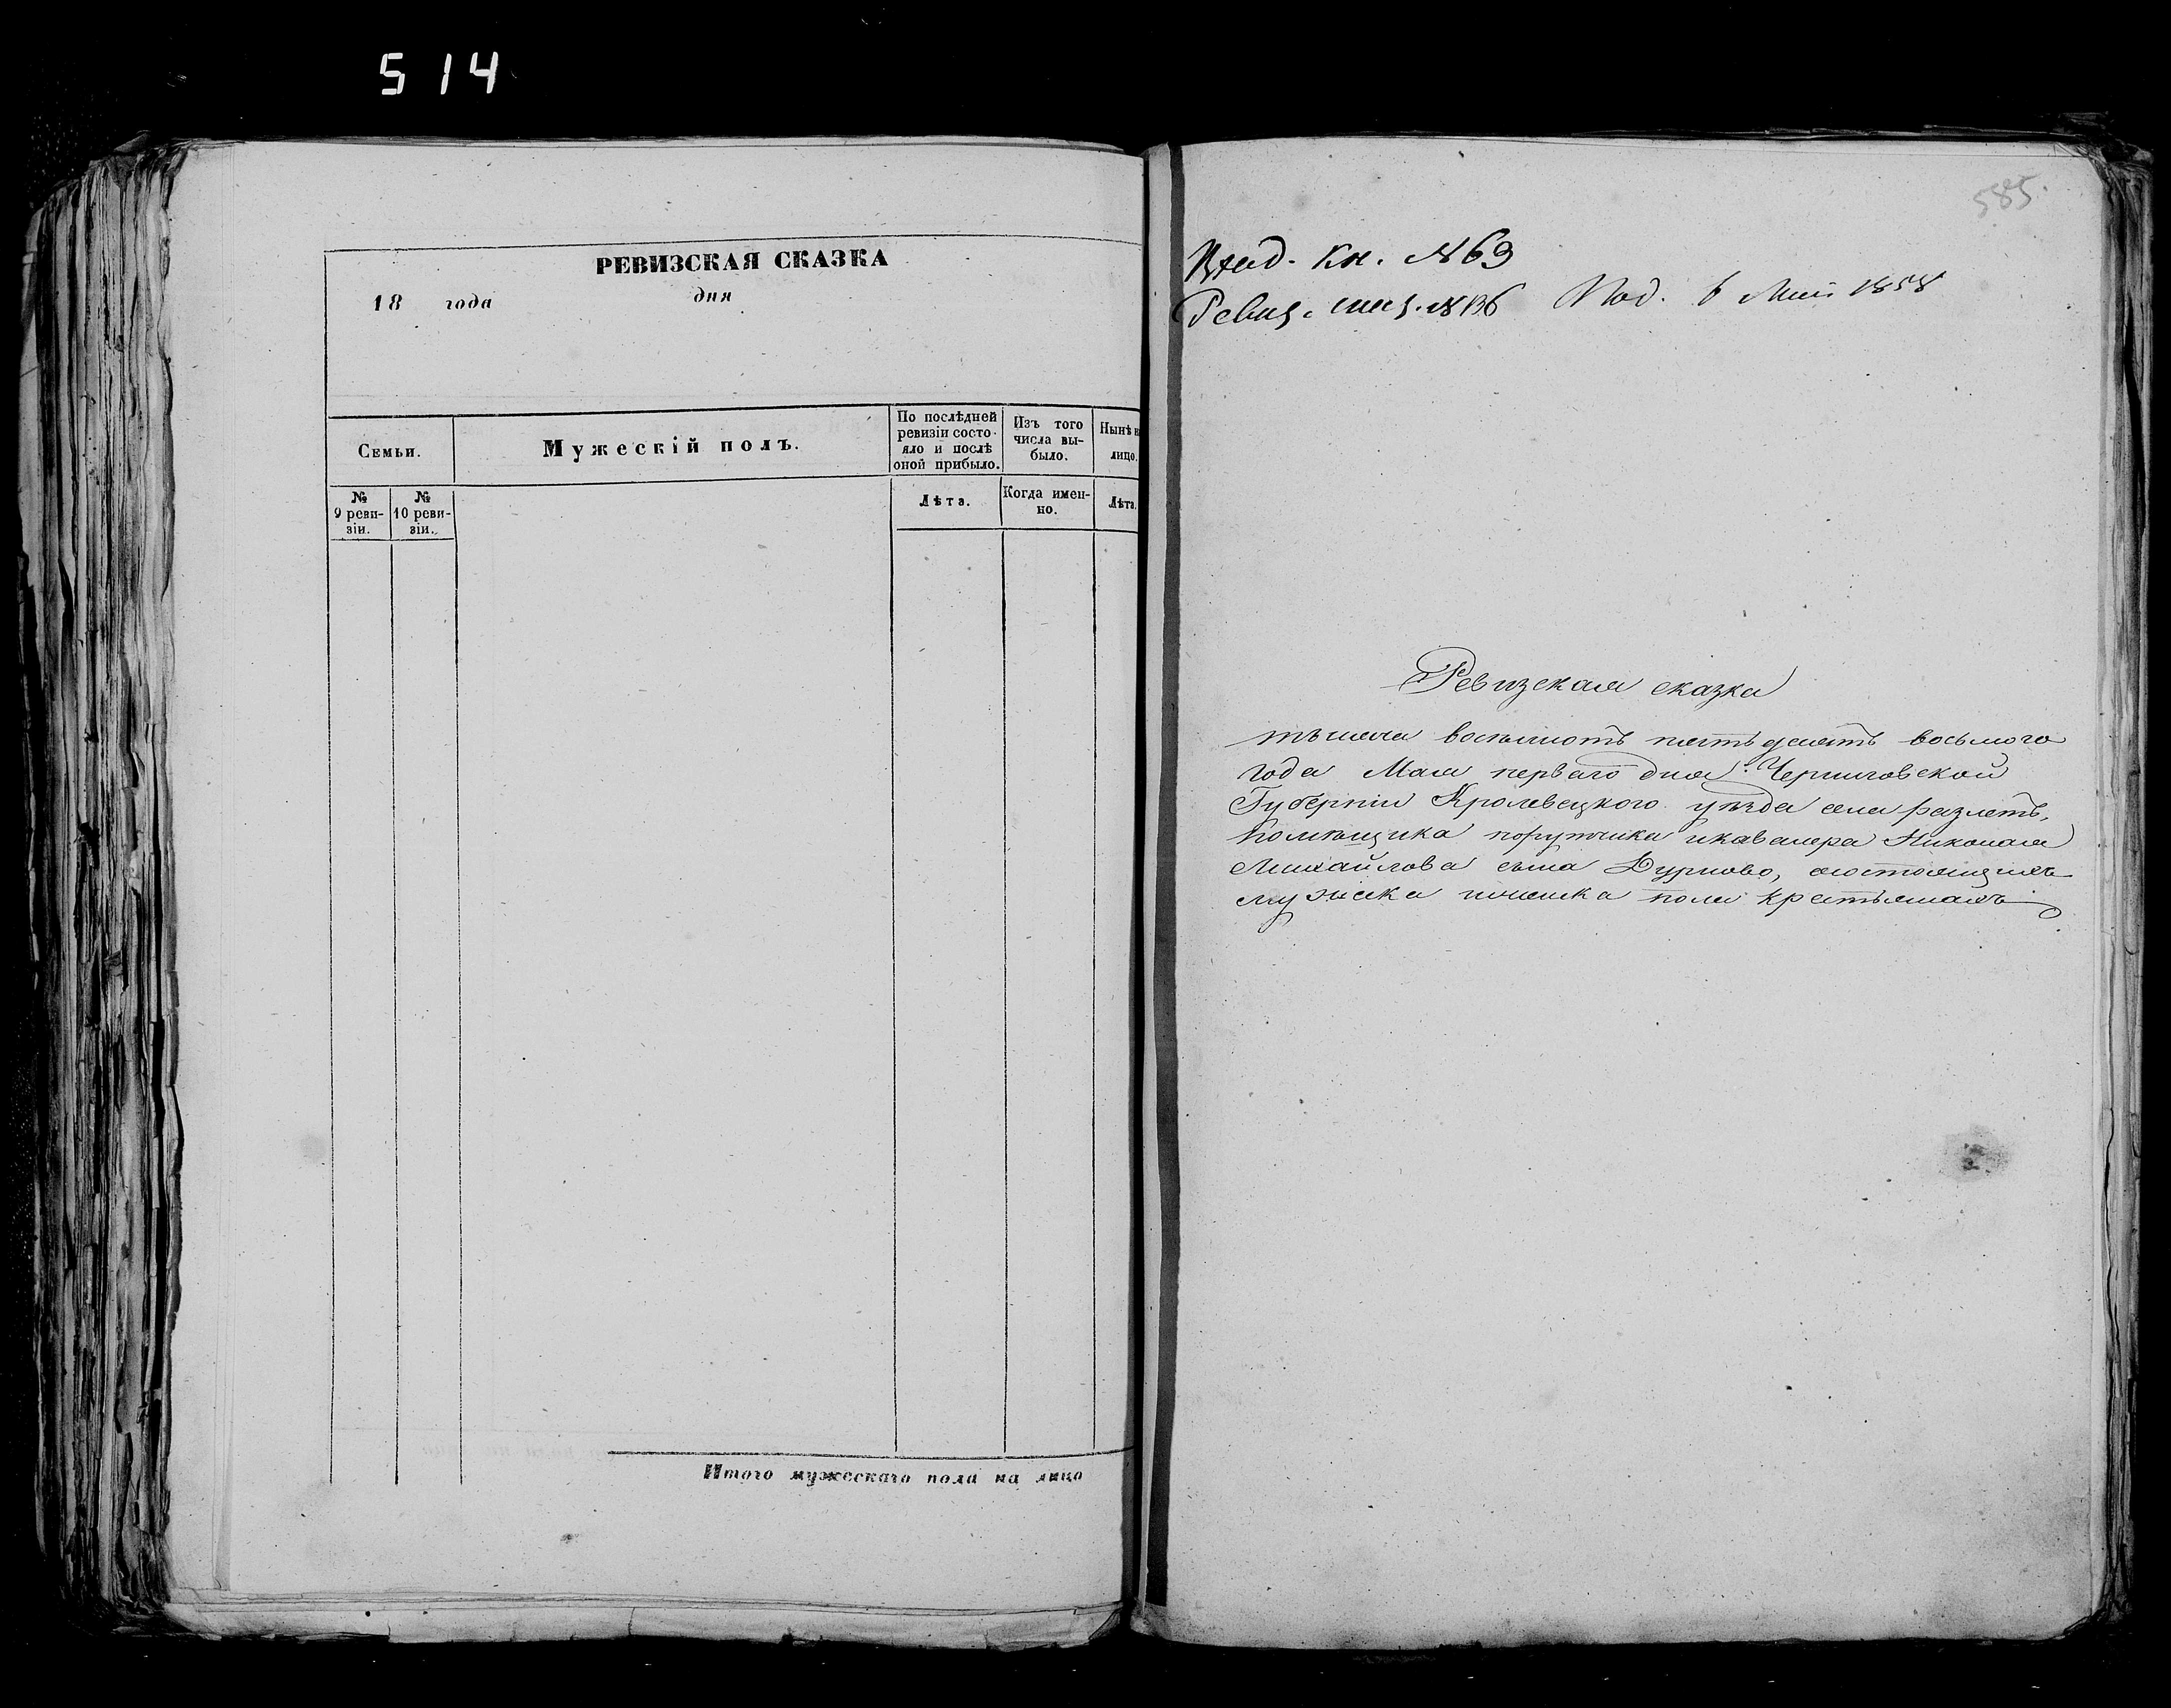 514
РЕВИЗСКАЯ СКАЗКА
18 года дня
Семьи.
Мужескій полъ.
По послѣдней ревизіи состо-
яло и послѣ оной прибыло.
Изъ того числа вы-
было.
Нынѣ н
лицо.
№ 9 реви-
зіи.
№ 10 реви-
зіи.
Лѣта.
Когда имен-
но.
Лѣта.
Итого мужескаго пола на лицо
585.
Вход. Кн. №69
Ревиз. №136 Под. 6 Мая 1858
Ревизская сказка
тысяча восемьсотъ пятьдесятъ восьмого
года Мая перваго дня Черниговской
Губерніи Кролевецкого уѣзда села разлетъ,
помѣщика порутчика икавалера Николая
Михайлова сына Дурново, состоящихъ
мужеска иженска пола крестьянахъ